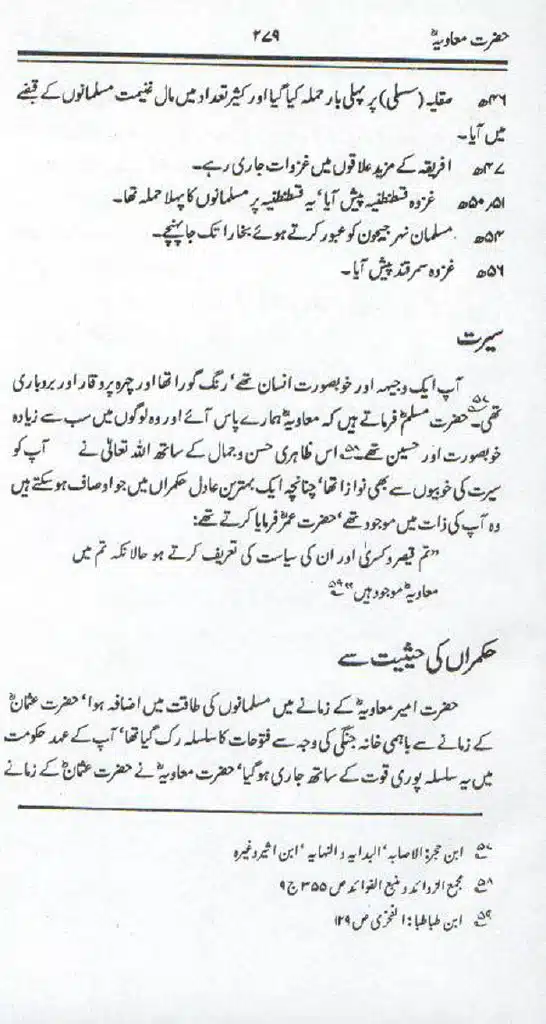 حضرت معاویہؓ ۲۷۹
۴۶ھ صقلیہ (سسلی) پر پہلی بار حملہ کیا گیا اور کثیر تعداد میں مال غنیمت مسلمانوں کے قبضے
میں آیا۔
۴۷ھ افریقہ کے مزید علاقوں میں غزوات جاری رہے۔
۵۰،۵۱ھ غزوہ قسطنطنیہ پیش آیا‘ یہ قسطنطنیہ پر مسلمانوں کا پہلا حملہ تھا۔
۵۴ھ مسلمان نہر جیحون کو عبور کرتے ہوئے بخارا تک جا پہنچے۔
۵۶ھ غزوہ سمرقند پیش آیا۔
سیرت
آپ ایک وجیہہ اور خوبصورت انسان تھے‘ رنگ گورا تھا اور چہرہ پر وقار اور بردباری
تھی۔۵۷ حضرت مسلمؓ فرماتے ہیں کہ معاویہؓ ہمارے پاس آئے اور وہ لوگوں میں سب سے زیادہ
خوبصورت اور حسین تھے۔۵۸ اس ظاہری حسن و جمال کے ساتھ اللہ تعالیٰ نے آپ کو
سیرت کی خوبیوں سے بھی نوازا تھا‘ چنانچہ ایک بہترین عادل حکمراں میں جو اوصاف ہو سکتے ہیں
وہ آپ کی ذات میں موجود تھے‘ حضرت عمرؓ فرمایا کرتے تھے:
”تم قیصر و کسریٰ اور ان کی سیاست کی تعریف کرتے ہو حالانکہ تم میں
معاویہؓ موجود ہیں“۵۹
حکمراں کی حیثیت سے
حضرت امیر معاویہؓ کے زمانے میں مسلمانوں کی طاقت میں اضافہ ہوا‘ حضرت عثمانؓ
کے زمانے سے باہمی خانہ جنگی کی وجہ سے فتوحات کا سلسلہ رک گیا تھا‘ آپ کے عہد حکومت
میں یہ سلسلہ پوری قوت کے ساتھ جاری ہو گیا‘ حضرت معاویہؓ نے حضرت عثمانؓ کے زمانے
۵۷ ابن حجر: الاصابہ‘ البدایہ و النہایہ‘ ابن اثیر وغیرہ
۵۸ مجمع الزوائد و منبع الفوائد ص ۳۵۵ ج ۹
۵۹ ابن طباطبا: الفخری ص ۱۲۹